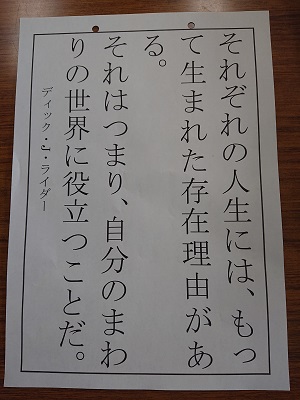 それぞれの人生には、もっ
て生まれた存在理由があ
る。
それはつまり、自分のまわ
りの世界に役立つことだ。
ディック・J・ライダー